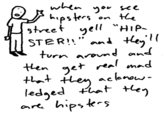 when you see
hipsters on the
street yell "HIP-
STER!!" and they'll
turn around and
then get real mad
that they acknow-
ledged that they
are hipsters